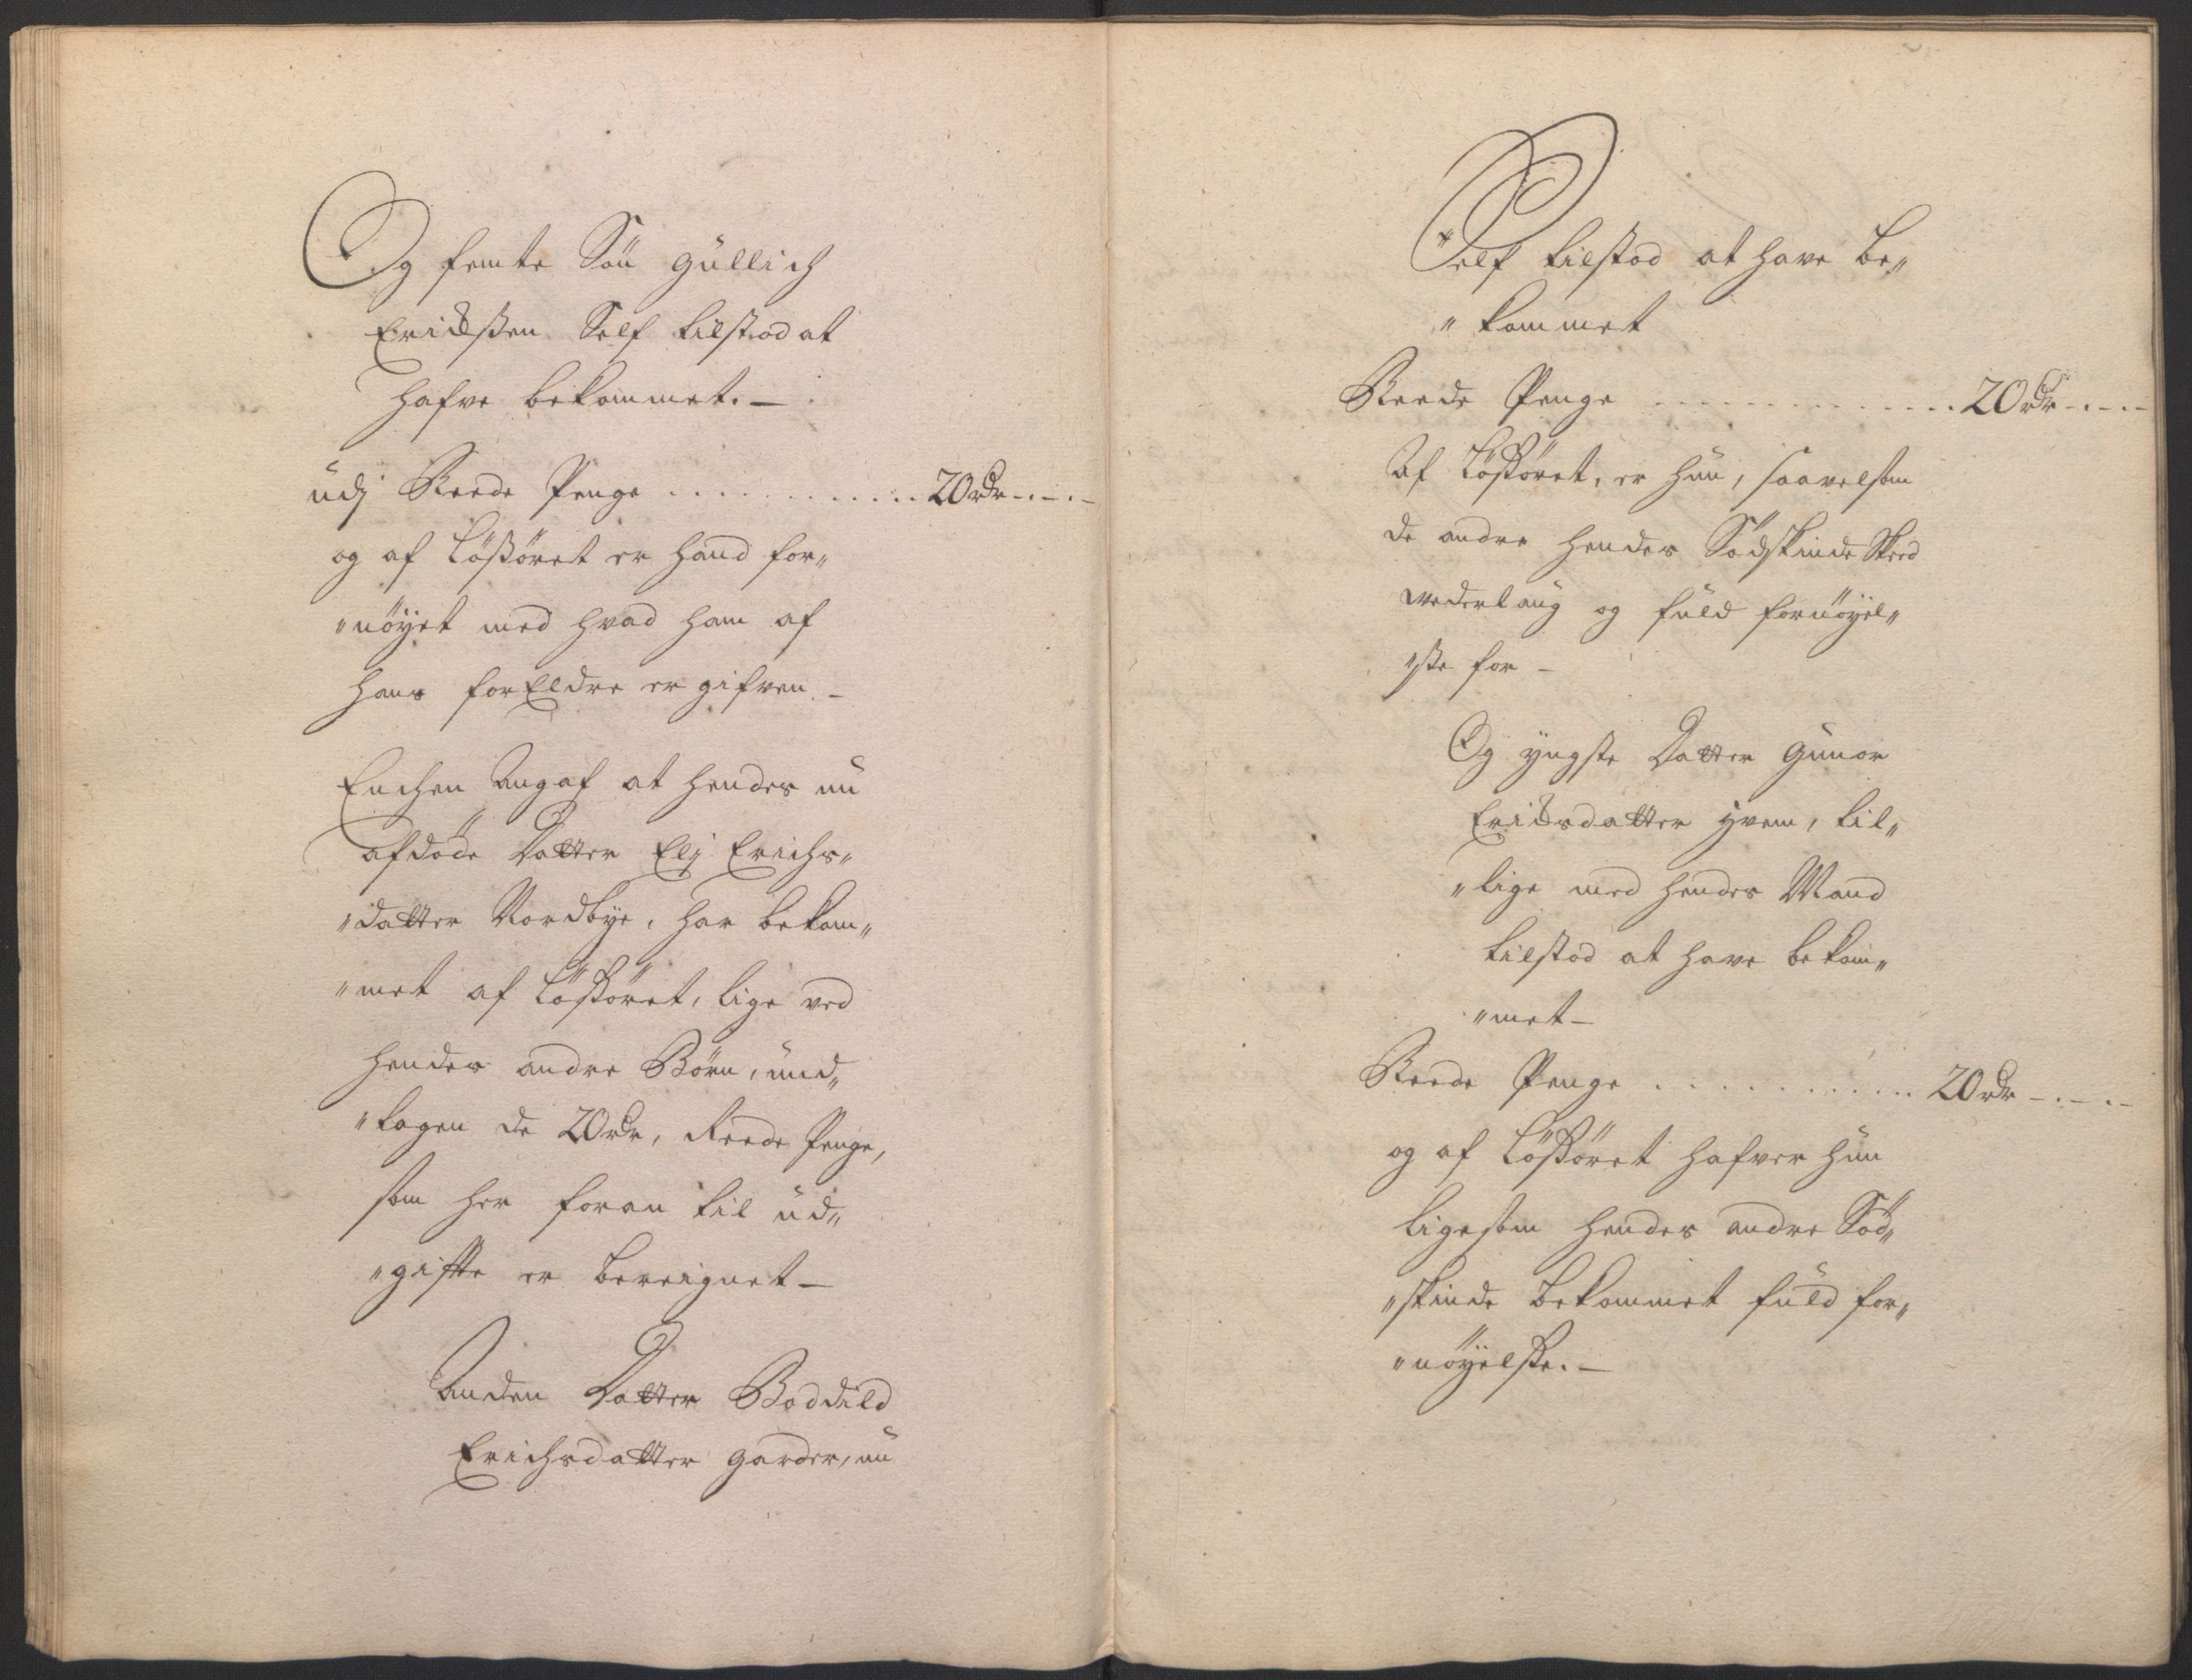 Og femte Søn Gullich
Erichsen Self tilstod at
hafve bekommet. –
udj Reede Penge . . . . . . . . . . . . 20 rdr - . - . -
og af Løssøret er hand for„
„nøyet med hvad ham af
hans forEldre er gifven. –
Enchen Angaf at hendes nu
afdøde Datter Elj Erichs„
„datter Nordbye, har bekom„
„met af Løssøret, lige ved
hendes andre Børn, und„
„tagen de 20 rdr, Reede Penge,
som her foran til ud„
„gifft er bereignet –
Anden Datter Boddild
Erichsdatter Garder, nu
Self tilstod at have be„
„kommet
Reede Penge . . . . . . . . . . . . . 20 rdr - . - . -
Af Løssøret, er hun, saavelsom
de andre hendes Sødskinde Skeed
vederlaug og fuld fornøyel„
„sse for –
Og yngste Datter Gunor
Erichsdatter yvem, til„
„lige med hendes Mand
tilstod at have bekom„
„met –
Reede Penge . . . . . . . . . . . 20 rdr - . - . -
og af Løssøret hafver hun
ligesom hendes andre Sød„
„skinde bekommet fuld for„
„nøyelsse. –